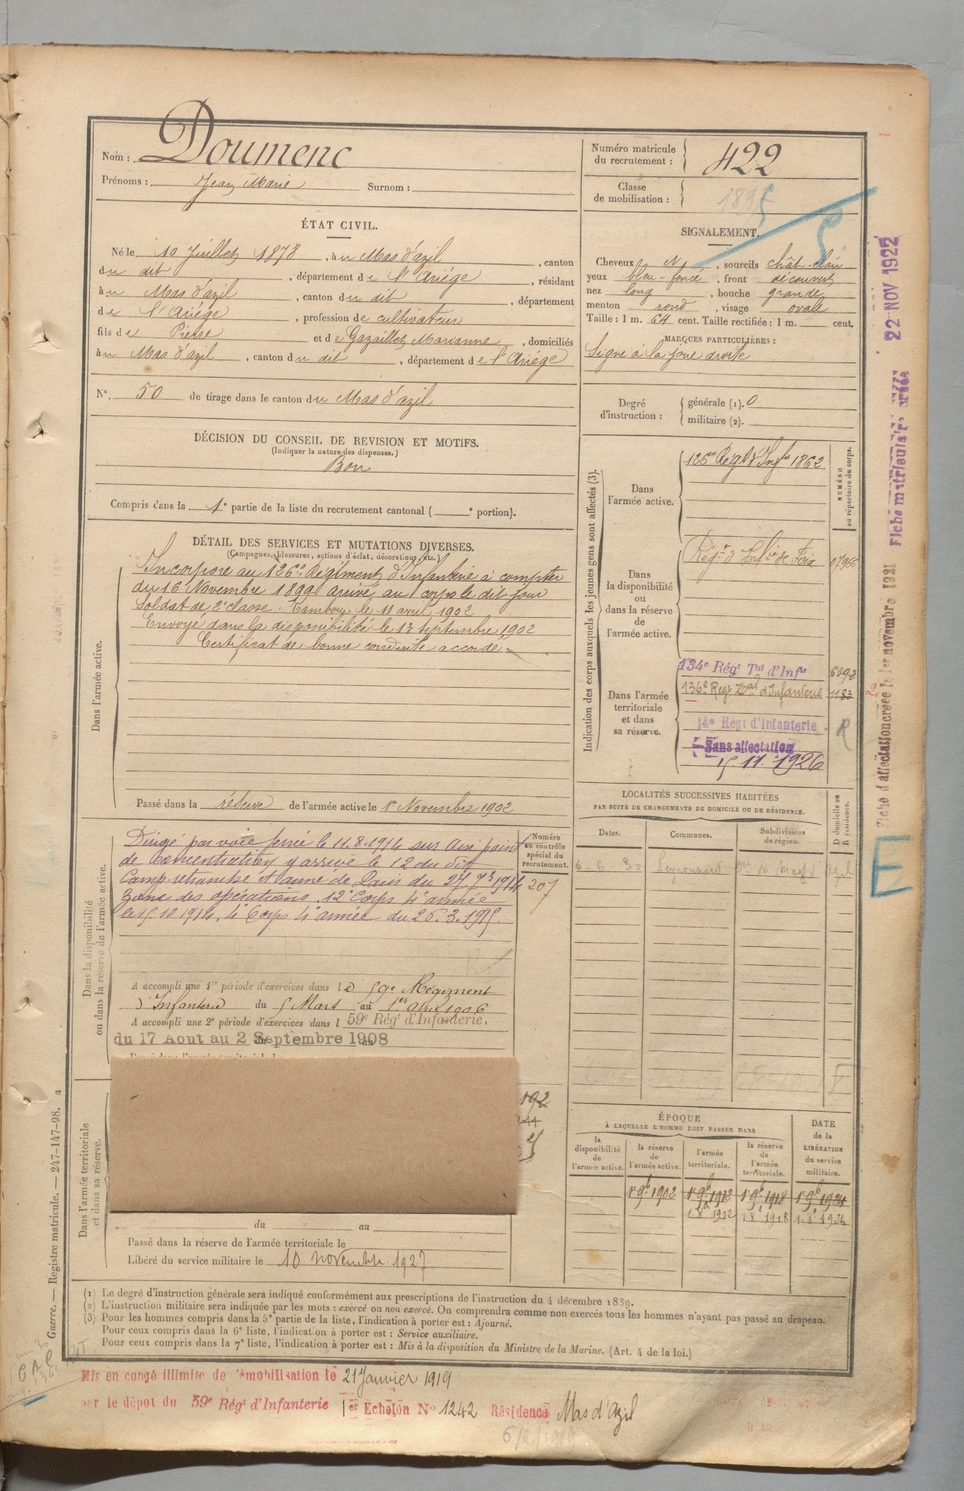 Nom : Doumenc
Prénoms : Jean Marie Surnom :
Numéro matricule du recrutement : 422
Classe de mobilisation :
ÉTAT CIVIL.
Né le 10 Juillet 1878, à u Mas d'azil, canton
du dit, département de l'Ariège, résidant
à u Mas d'azil, canton du dit, département
de l'Ariège, profession de cultivateur
fils de Pierre et de Gazaillet Marianne, domiciliés
à u Mas d'azil, canton du dit, département de l'Ariège
N° 50 de tirage dans le canton du Mas d'azil
SIGNALEMENT.
Cheveux N, sourcils chât. clair
yeux bleu-foncé, front découvert
nez long, bouche grande
menton rond, visage ovale
Taille : 1 m. 64 cent. Taille rectifiée : 1 m. cent.
MARQUES PARTICULIÈRES :
Signe à la joue droite
Degré d'instruction : générale (1). 0
militaire (2).
DÉCISION DU CONSEIL DE REVISION ET MOTIFS.
(Indiquer la nature des dispenses.)
Bon
Compris dans la 1e partie de la liste du recrutement cantonal ( e portion).
DÉTAIL DES SERVICES ET MUTATIONS DIVERSES.
(Campagnes, blessures, actions d'éclat, décorations, etc.)
Dans l'armée active.
Incorporé au 126e Régiment d'Infanterie à compter
du 16 Novembre 1899 arrivé au corps le dit jour
Soldat de 2e classe. Tambour le 11 avril 1902
Envoyé dans la disponibilité le 13 septembre 1902
Certificat de bonne conduite accordé
Passé dans la réserve de l'armée active le 1er Novembre 1902
Indication des corps auxquels les jeunes gens sont affectés (3).
NUMÉRO au répertoire du corps.
Dans l'armée active.
126e Régt d'Infie 1862
Dans la disponibilité ou dans la réserve de l'armée active.
Régt d'Infie de Foix
Dans l'armée territoriale et dans sa réserve.
134e Régt Tal d'Infie
136e Régt Tal d'Infanterie 1183
14e Régt d'Infanterie R
Sans affectation
15 11 1926
Dans la disponibilité ou dans la réserve de l'armée active.
Numéro au contrôle spécial du recrutement.
207
Dirigé par voie ferrée le 11.8.1914 sur
de concentration y arrivé le 12 du dit
Camp retranché et armé de Paris du 25 7bre 1914
Zone des opérations. 12e Corps 4e armée
le 15.10.1914. 4e Corps 4e armée du 26.3.1915.
A accompli une 1re période d'exercices dans le 59e Régiment
d'Infanterie du 5 Mars au 1er avril 1906
A accompli une 2e période d'exercices dans l 59e Régt d'Infanterie.
du 17 Aout au 2 Septembre 1908
Dans l'armée territoriale et dans sa réserve.
du au
Passé dans la réserve de l'armée territoriale le
Libéré du service militaire le 10 novembre 1927
LOCALITÉS SUCCESSIVES HABITÉES
PAR SUITE DE CHANGEMENTS DE DOMICILE OU DE RÉSIDENCE.
Dates. Communes. Subdivisions de région. D domicile ou R résidence.
ÉPOQUE
À LAQUELLE L'HOMME DOIT PASSER DANS
DATE de la LIBÉRATION du service militaire.
la disponibilité de l'armée active. la réserve de l'armée active. l'armée territoriale. la réserve de l'armée territoriale.
1er 9bre 1902 1er 9bre 1912 1er 9bre 1918 1er 9bre 1924
(1) Le degré d'instruction générale sera indiqué conformément aux prescriptions de l'instruction du 4 décembre 1889.
(2) L'instruction militaire sera indiquée par les mots : exercé ou non exercé. On comprendra comme non exercés tous les hommes n'ayant pas passé au drapeau.
(3) Pour les hommes compris dans la 5e partie de la liste, l'indication à porter est : Ajourné.
Pour ceux compris dans la 6e liste, l'indication à porter est : Service auxiliaire.
Pour ceux compris dans la 7e liste, l'indication à porter est : Mis à la disposition du Ministre de la Marine. (Art. 4 de la loi.)
Mis en congé illimité de démobilisation le 21 Janvier 1919
sur le dépot du 59e Régt d'Infanterie 1er Echelon N° 1242 Résidence Mas d'Azil
Guerre. — Registre matricule. — 247-147-98.
Fiche d'affectation créée le 1er novembre 1921
Fiche matriculaire créée 22 NOV 1922
E